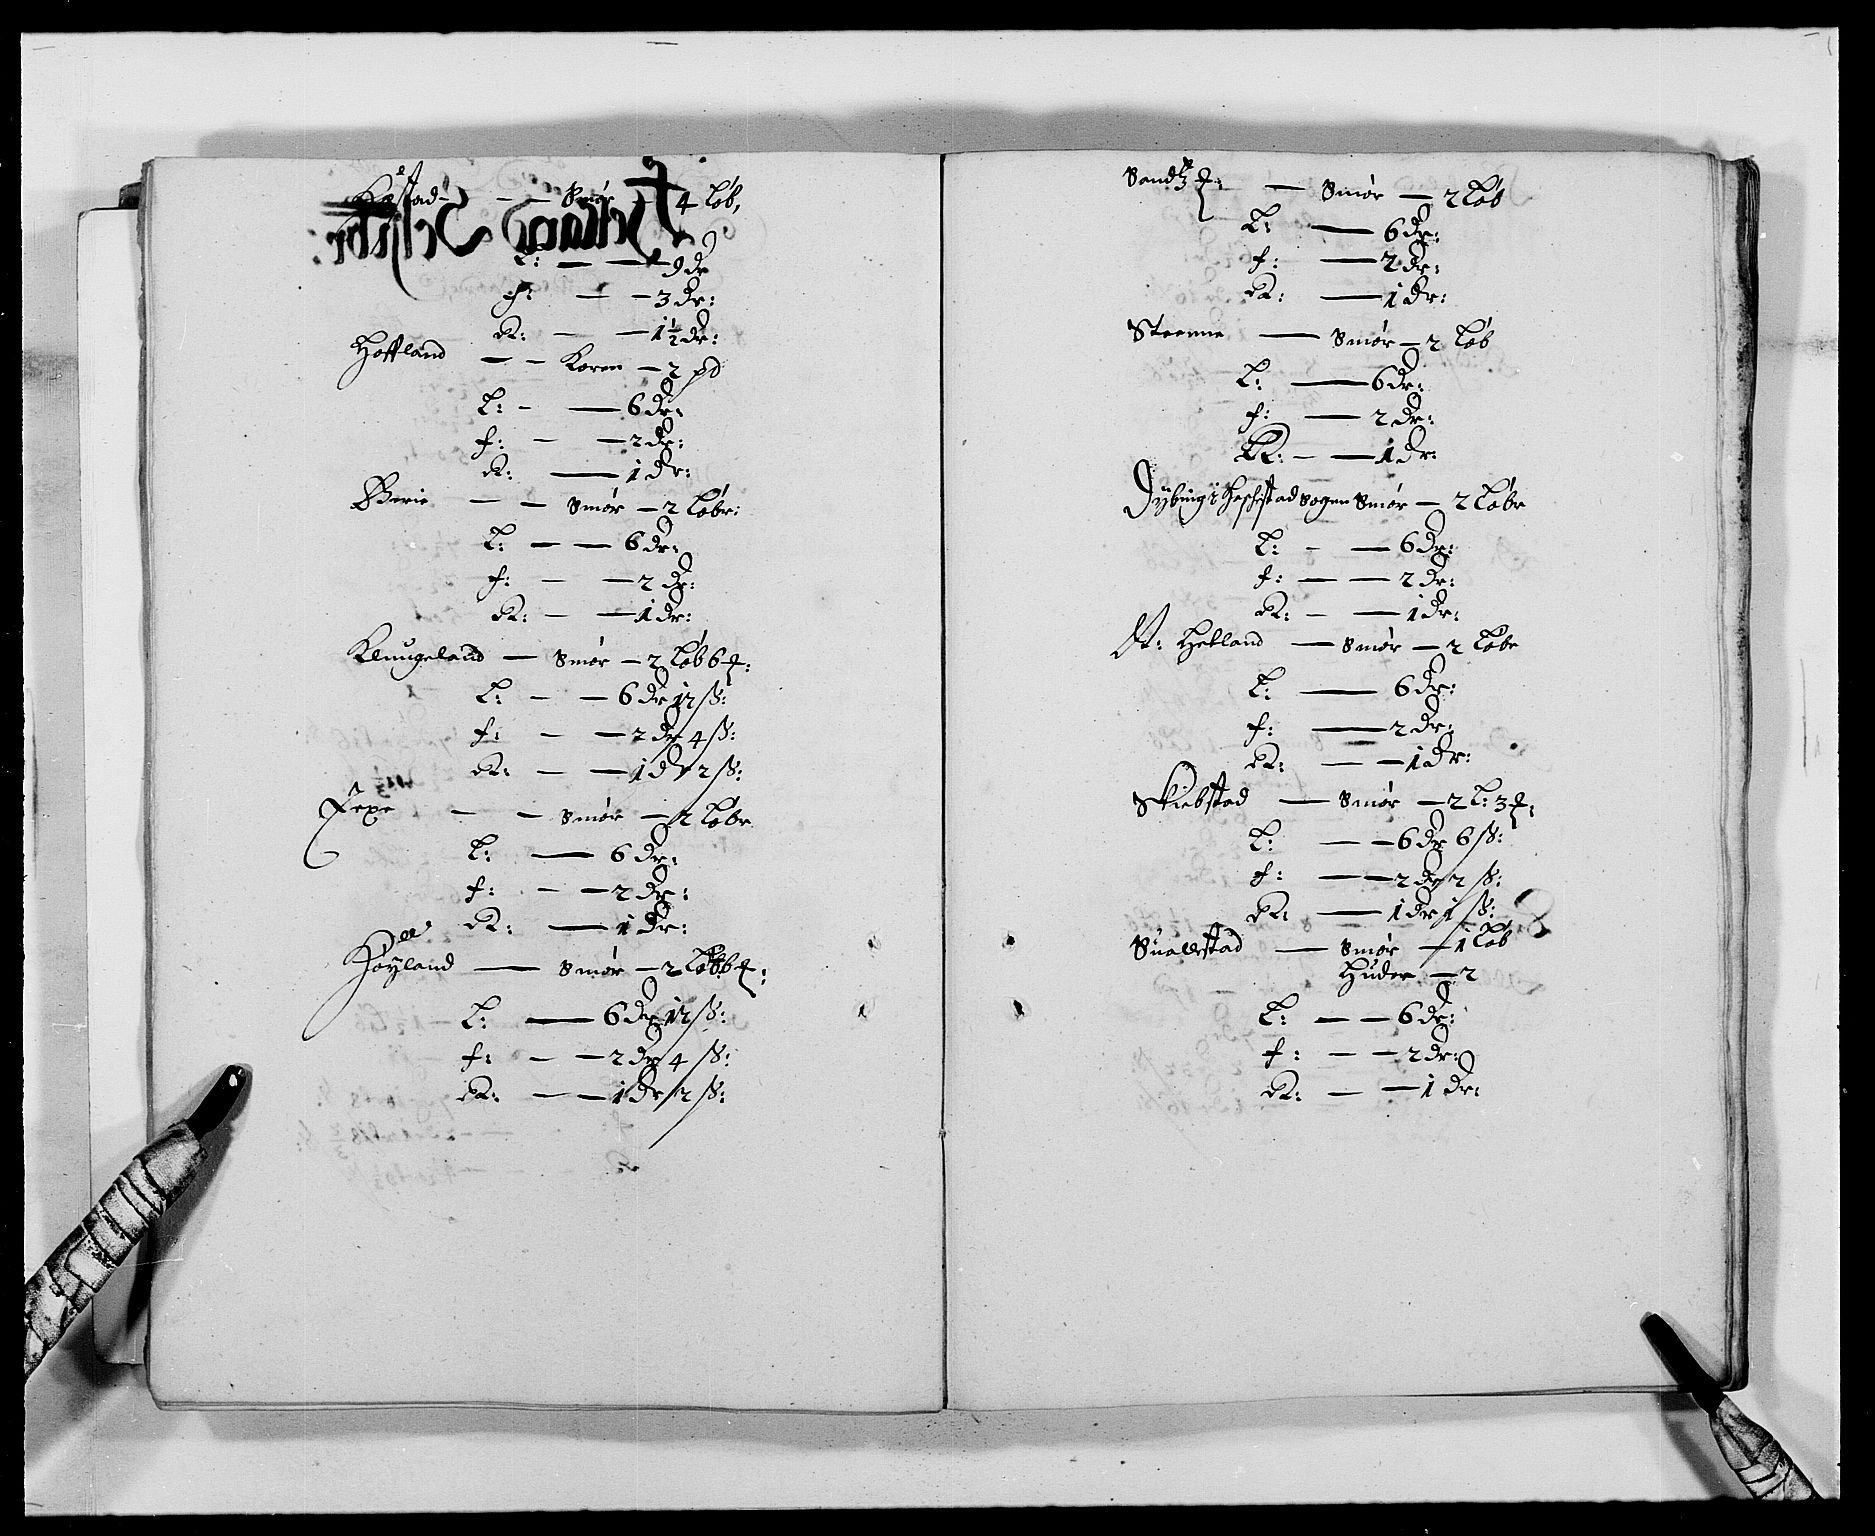 Høstad - - Smør 4 Løb,
L: - - 9 dr
f: - - 3 dr:
R: - - 1½ dr:
Hoffland - - Koren - 2 pd
L: - - 6 dr:
f: - - 2 dr:
R: - 1 dr:
Berie - - Smør - 2 Løbr:
L: - - 6 dr:
f: - - 2 dr:
R: - - 1 dr:
Klungeland - Smør - 2 Løb 6
L: - - 6 dr 12 ß:
f: - - 2 dr 4 ß:
R: - - 1 dr 2 ß:
- - Smør - 2 Løbr
L: - 6 dr:
f: - - 2 dr:
R: - 1 dr:
Høyland - Smør - 2 Løb 6
L: - 6 dr 12 ß:
f: - - 2 dr 4 ß:
R: - - 1 dr 2 ß:
Sand - Smør - 2 Løb
L: - 6 dr:
f: - 2 dr:
R: - 1 dr:
Steenne - Smør - 2 Løb
L: - 6 dr:
f: - 2 dr:
R: - - 1 dr:
Dÿbing i Heschestad Sogen Smør - 2 Løbr
L: - - 6 dr:
f: - - 2 dr:
R: - - 1 dr:
N: Hetland - Smør - 2 Løbr
L: - 6 dr:
f: - 2 dr:
R: - - 1 dr:
Skiebstad - Smør - 2 L: 3
L: - - 6 dr 6 ß:
f: - - 2 dr 2 ß:
R: - 1 dr 1 ß:
Sualestad - Smør - 1 Løb
Huder - 2
L: - - 6 dr:
f: - - 2 dr:
R: - - 1 dr: